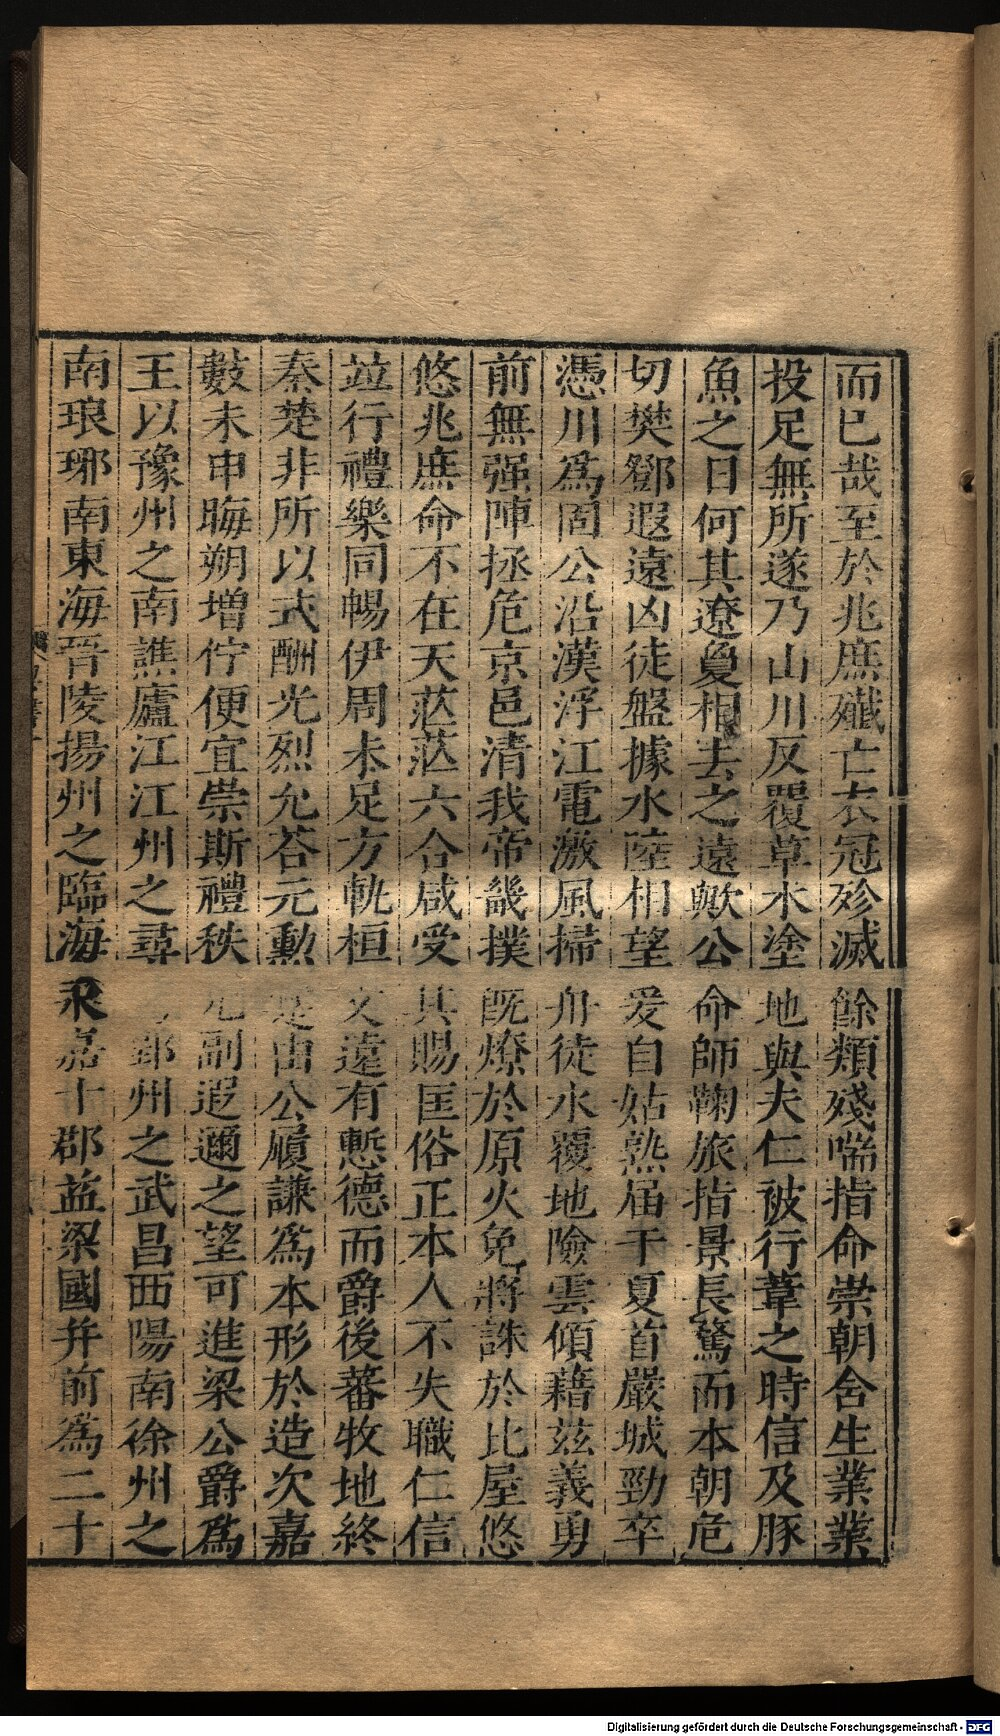 而已哉至於兆庶殲亡衣冠殄滅餘類殘喘指命崇朝含生業業
投足無所遂乃山川反覆草木塗地與夫仁被行葦之時信及豚
魚之日何其遼敻相去之遠歟公命師鞠旅指景長騖而本朝危
切樊鄧遐遠凶徒盤據水陸相望爰自姑熟届于夏首嚴城勁卒
憑川爲固公沿漢浮江電激風掃舟徒水覆地險雲傾藉兹義勇
前無强陣拯危京邑清我帝畿撲既燎於原火免將誅於比屋悠
悠兆庶命不在天茫茫六合咸受其賜匡俗正本人不失職仁信
竝行禮樂同暢伊周未足方軌桓文遠有慙德而爵後蕃牧地終
秦楚非所以式酬光烈允荅元勲寔由公履謙爲本形於造次嘉
數未申晦朔增佇便宜崇斯禮秩允副遐邇之望可進梁公爵爲
王以豫州之南譙廬江江州之尋陽郢州之武昌西陽南徐州之
南琅琊南東海晉陵揚州之臨海永嘉十郡益梁國并前爲二十
Digitalisierung gefördert durch die Deutsche Forschungsgemeinschaft - DFG